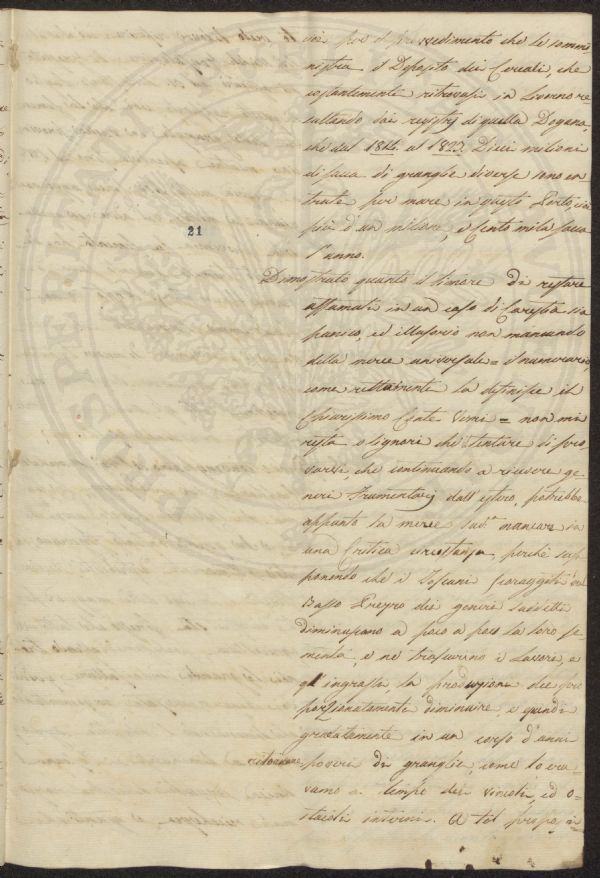 sia per il provvedimento che Le sommi
nistra il Deposito dei Cereali, che
costantemente ritrovasi in Livorno re
sultando dai registrj di quella Dogana,
che dal 1814. al 1823. Dieci milioni
di sacca di granglie diverse sono en=
trate per mare in questo Porto, cia
più d'un milione, e Cento mila sacca
l'anno.
21
Dimostrato quanto il timore di restare
affamati in un caso di Carestia sia
panico, ed illusorio non mancando
della merce universale = il numerario,
come rettamente la definisce il
Chiarissimo Conte Verri = non mi
resta o Signori che tentare di pro,
varvi, che continuando a ricevere ge
neri Frumentarj dall'estero, potrebbe
appunto la merce sudª. mancare in
una Critica circostanza, perchè sup
ponendo che i Toscani scoraggiti dal
Basso Prezzo dei generi suddetti
diminuscano a poco a poco la loro se
menta, e ne trascurino i Lavori, e
gl'ingrassi, la produzione dee pro
porzionatamente diminuire, e quindi
gradatamente in un corso d'anni
ritornare poveri di granglie, come lo era
vamo a tempi dei vincoli, ed o=
stacoli interni. A tal propo,,